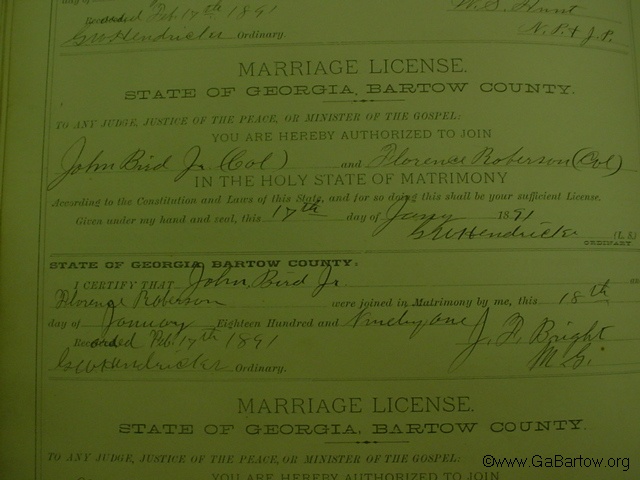 Recorded Feb 17th 1891 W. S. Hunt
GW Hendricks Ordinary. N.P. & J.P.
MARRIAGE LICENSE.
STATE OF GEORGIA, BARTOW COUNTY.
TO ANY JUDGE, JUSTICE OF THE PEACE, OR MINISTER OF THE GOSPEL:
YOU ARE HEREBY AUTHORIZED TO JOIN
John Bird Jr (Col) and Florence Roberson (Col)
IN THE HOLY STATE OF MATRIMONY
According to the Constitution and Laws of this State, and for so doing this shall be your sufficient License.
Given under my hand and seal, this 17th day of Jany 1891
GW Hendricks (L. S.)
ORDINARY
STATE OF GEORGIA, BARTOW COUNTY:
I CERTIFY THAT John Bird Jr. an
Florence Roberson were joined in Matrimony by me, this 18th
day of January Eighteen Hundred and Ninety one
J. F. Bright
Recorded Feb. 17th 1891 M.G.
GW Hendricks Ordinary.
MARRIAGE LICENSE.
STATE OF GEORGIA, BARTOW COUNTY.
TO ANY JUDGE, JUSTICE OF THE PEACE, OR MINISTER OF THE GOSPEL:
YOU ARE HEREBY AUTHORIZED TO JOIN
©www.GaBartow.org